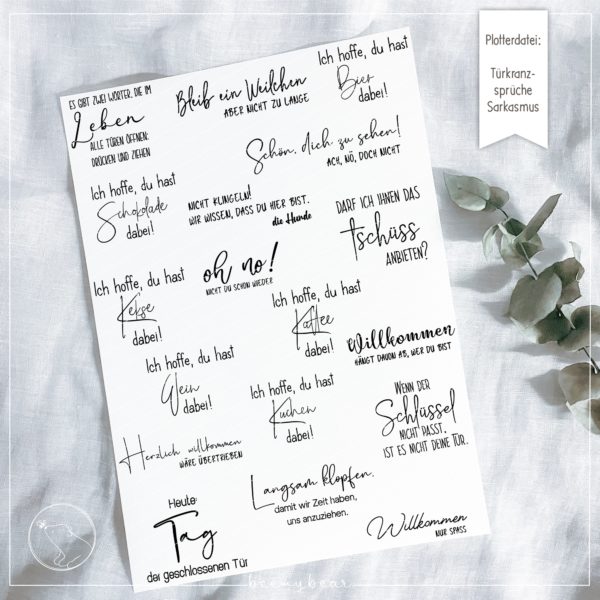 Plotterdatei:
Türkranz-
sprüche
Sarkasmus
ES GIBT ZWEI WÖRTER, DIE IM
Leben
ALLE TÜREN ÖFFNEN:
DRÜCKEN UND ZIEHEN
Bleib ein Weilchen
ABER NICHT ZU LANGE
Ich hoffe, du hast
Bier
dabei!
Schön, dich zu sehen!
ACH, NÖ, DOCH NICHT
Ich hoffe, du hast
Schokolade
dabei!
NICHT KLINGELN!
WIR WISSEN, DASS DU HIER BIST.
die Hunde
DARF ICH IHNEN DAS
tschüss
ANBIETEN?
oh no!
NICHT DU SCHON WIEDER
Ich hoffe, du hast
Kekse
dabei!
Ich hoffe, du hast
Kaffee
dabei!
Willkommen
HÄNGT DAVON AB, WER DU BIST
Ich hoffe, du hast
Wein
dabei!
Ich hoffe, du hast
Kuchen
dabei!
WENN DER
Schlüssel
NICHT PASST,
IST ES NICHT DEINE TÜR.
Herzlich willkommen
WÄRE ÜBERTRIEBEN
Langsam klopfen,
damit wir Zeit haben,
uns anzuziehen.
Heute:
Tag
der geschlossenen Tür
Willkommen
NUR SPASS
beemybear